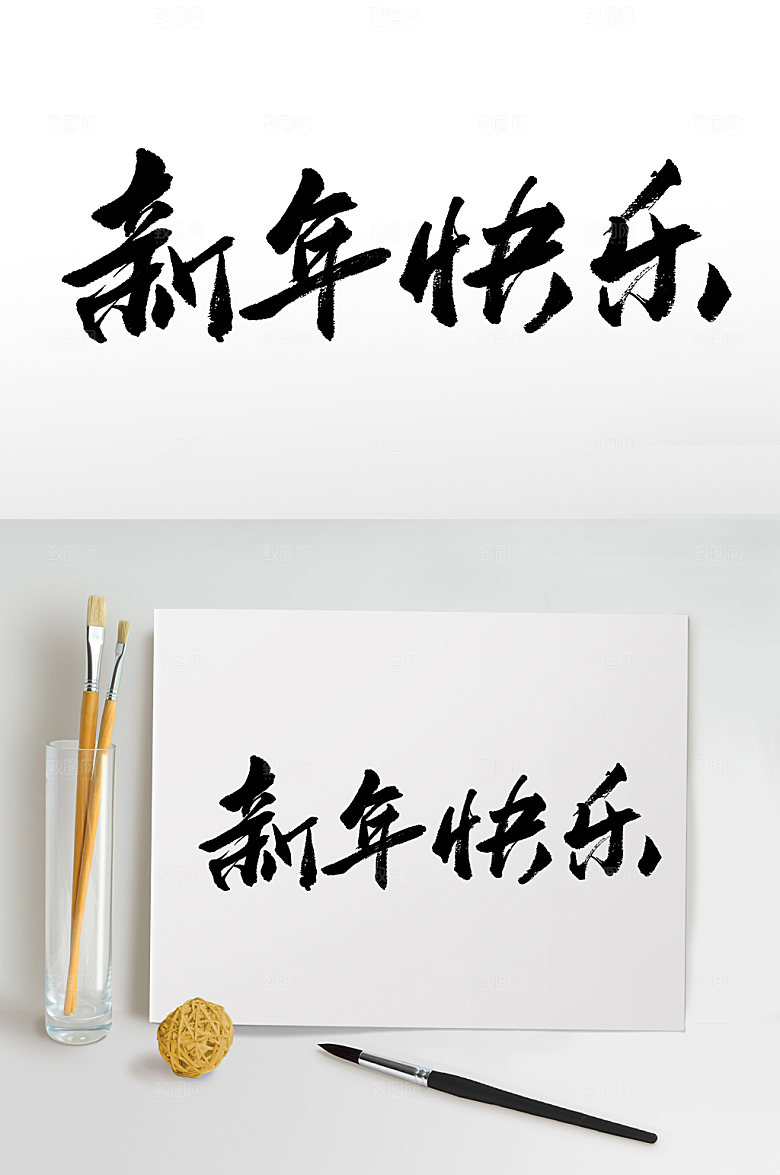 新年快乐
新年快乐